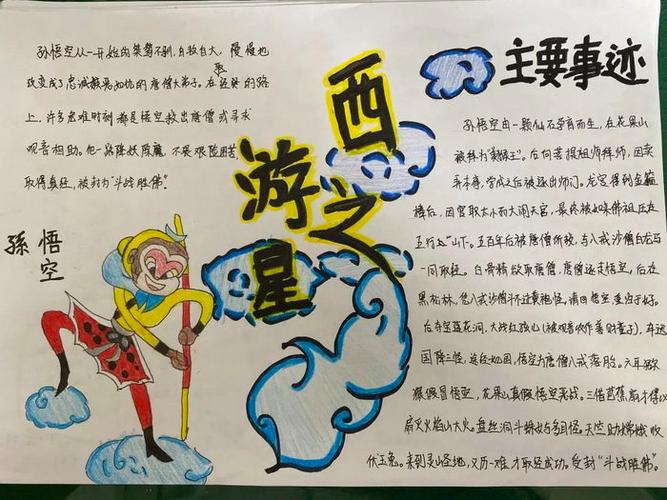 孙悟空从一开始的桀骜不驯，自我自大，慢慢地
改变成了忠诚嫉恶如仇的唐僧大弟子。在取经的路
上，许多危难时刻都是悟空救出唐僧或寻求
观音相助。他一路降妖除魔，不畏艰险困苦
取得真经，被封为"斗战胜佛"。
西
游
之
星
孫悟空
主要事迹
孙悟空由一颗仙石孕育而生，在花果山
被拜为"美猴王"。后向菩提祖师拜师，因卖
弄本事，学成之后被逐出师门。龙宫得到金箍
棒后，因官职太小而大闹天宫，最终被如来佛祖压在
五行"山"下。五百年后被唐僧所救，与八戒沙僧白龙马
一同取经。白骨精欲取唐僧，唐僧逐走悟空，后在
黑松林，您八戒沙僧斗不过黄袍怪，请回悟空重归于好。
后夺宝莲花洞，大战红孩儿(被观音收作善财童子)，车迟
国降三怪，途经女儿国，悟空为唐僧八戒落胎。六耳猕
猴假冒悟空，花果山真假悟空大战。三借芭蕉扇才得以
扇灭火焰山大火。盘丝洞斗蜘蛛与多目怪。天空助嫦娥收
伏玉兔。来到灵山圣地，又历一难才取经成功。受封"斗战胜佛"。